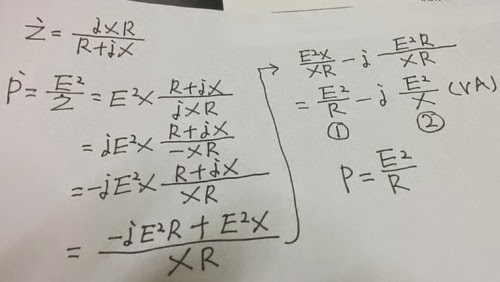 Ż = jXR / (R + jX)
Ṗ = E² / Ż = E² × (R + jX) / (jXR)
= jE² × (R + jX) / (-XR)
= -jE² × (R + jX) / (XR)
= (-jE²R + E²X) / (XR)
E²X / XR - j E²R / XR
= E² / R - j E² / X (VA)
① ②
P = E² / R